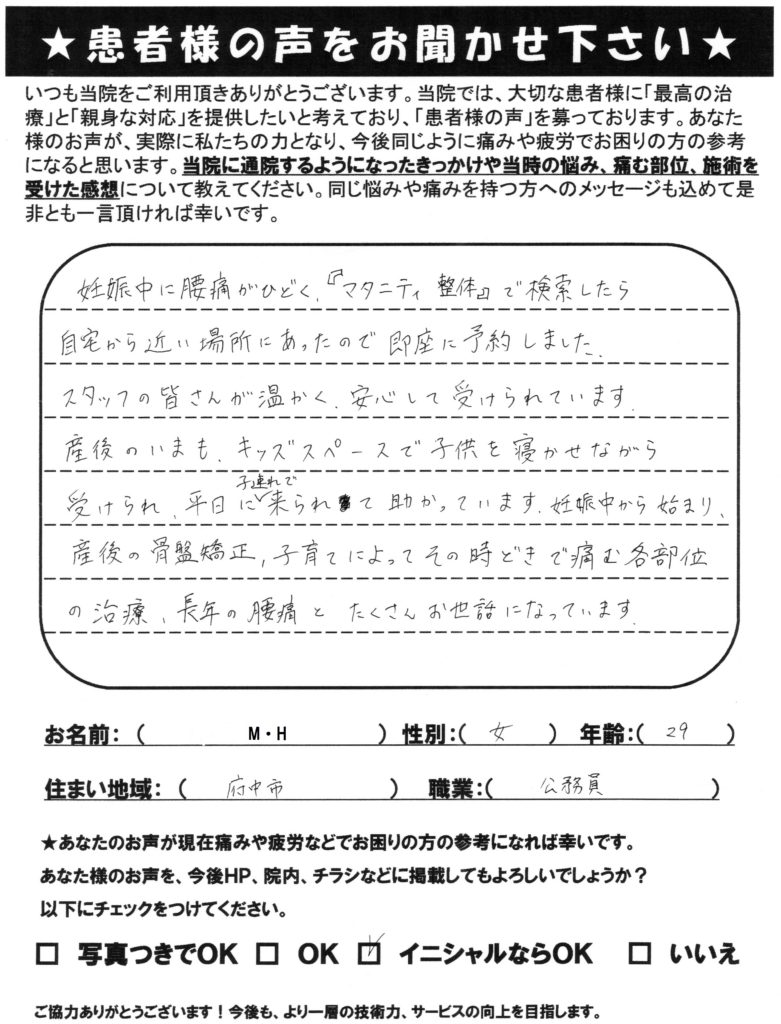 ★患者様の声をお聞かせ下さい★
いつも当院をご利用頂きありがとうございます。当院では、大切な患者様に「最高の治
療」と「親身な対応」を提供したいと考えており、「患者様の声」を募っております。あなた
様のお声が、実際に私たちの力となり、今後同じように痛みや疲労でお困りの方の参考
になると思います。当院に通院するようになったきっかけや当時の悩み、痛む部位、施術を
受けた感想について教えてください。同じ悩みや痛みを持つ方へのメッセージも込めて是
非とも一言頂ければ幸いです。
妊娠中に腰痛がひどく、『マタニティ 整体』で検索したら
自宅から近い場所にあったので即座に予約しました。
スタッフの皆さんが温かく、安心して受けられています。
産後のいまも、キッズスペースで子供を寝かせながら
子連れで
受けられ、平日に来られて助かっています。妊娠中から始まり、
産後の骨盤矯正、子育てによってその時どきで痛む各部位
の治療、長年の腰痛とたくさんお世話になっています。
お名前:( M・H ) 性別:( 女 ) 年齢:( 29 )
住まい地域: ( 府中市 ) 職業:( 公務員 )
★あなたのお声が現在痛みや疲労などでお困りの方の参考になれば幸いです。
あなた様のお声を、今後HP、院内、チラシなどに掲載してもよろしいでしょうか?
以下にチェックをつけてください。
□ 写真つきでOK □ OK ☑ イニシャルならOK □ いいえ
ご協力ありがとうございます!今後も、より一層の技術力、サービスの向上を目指します。